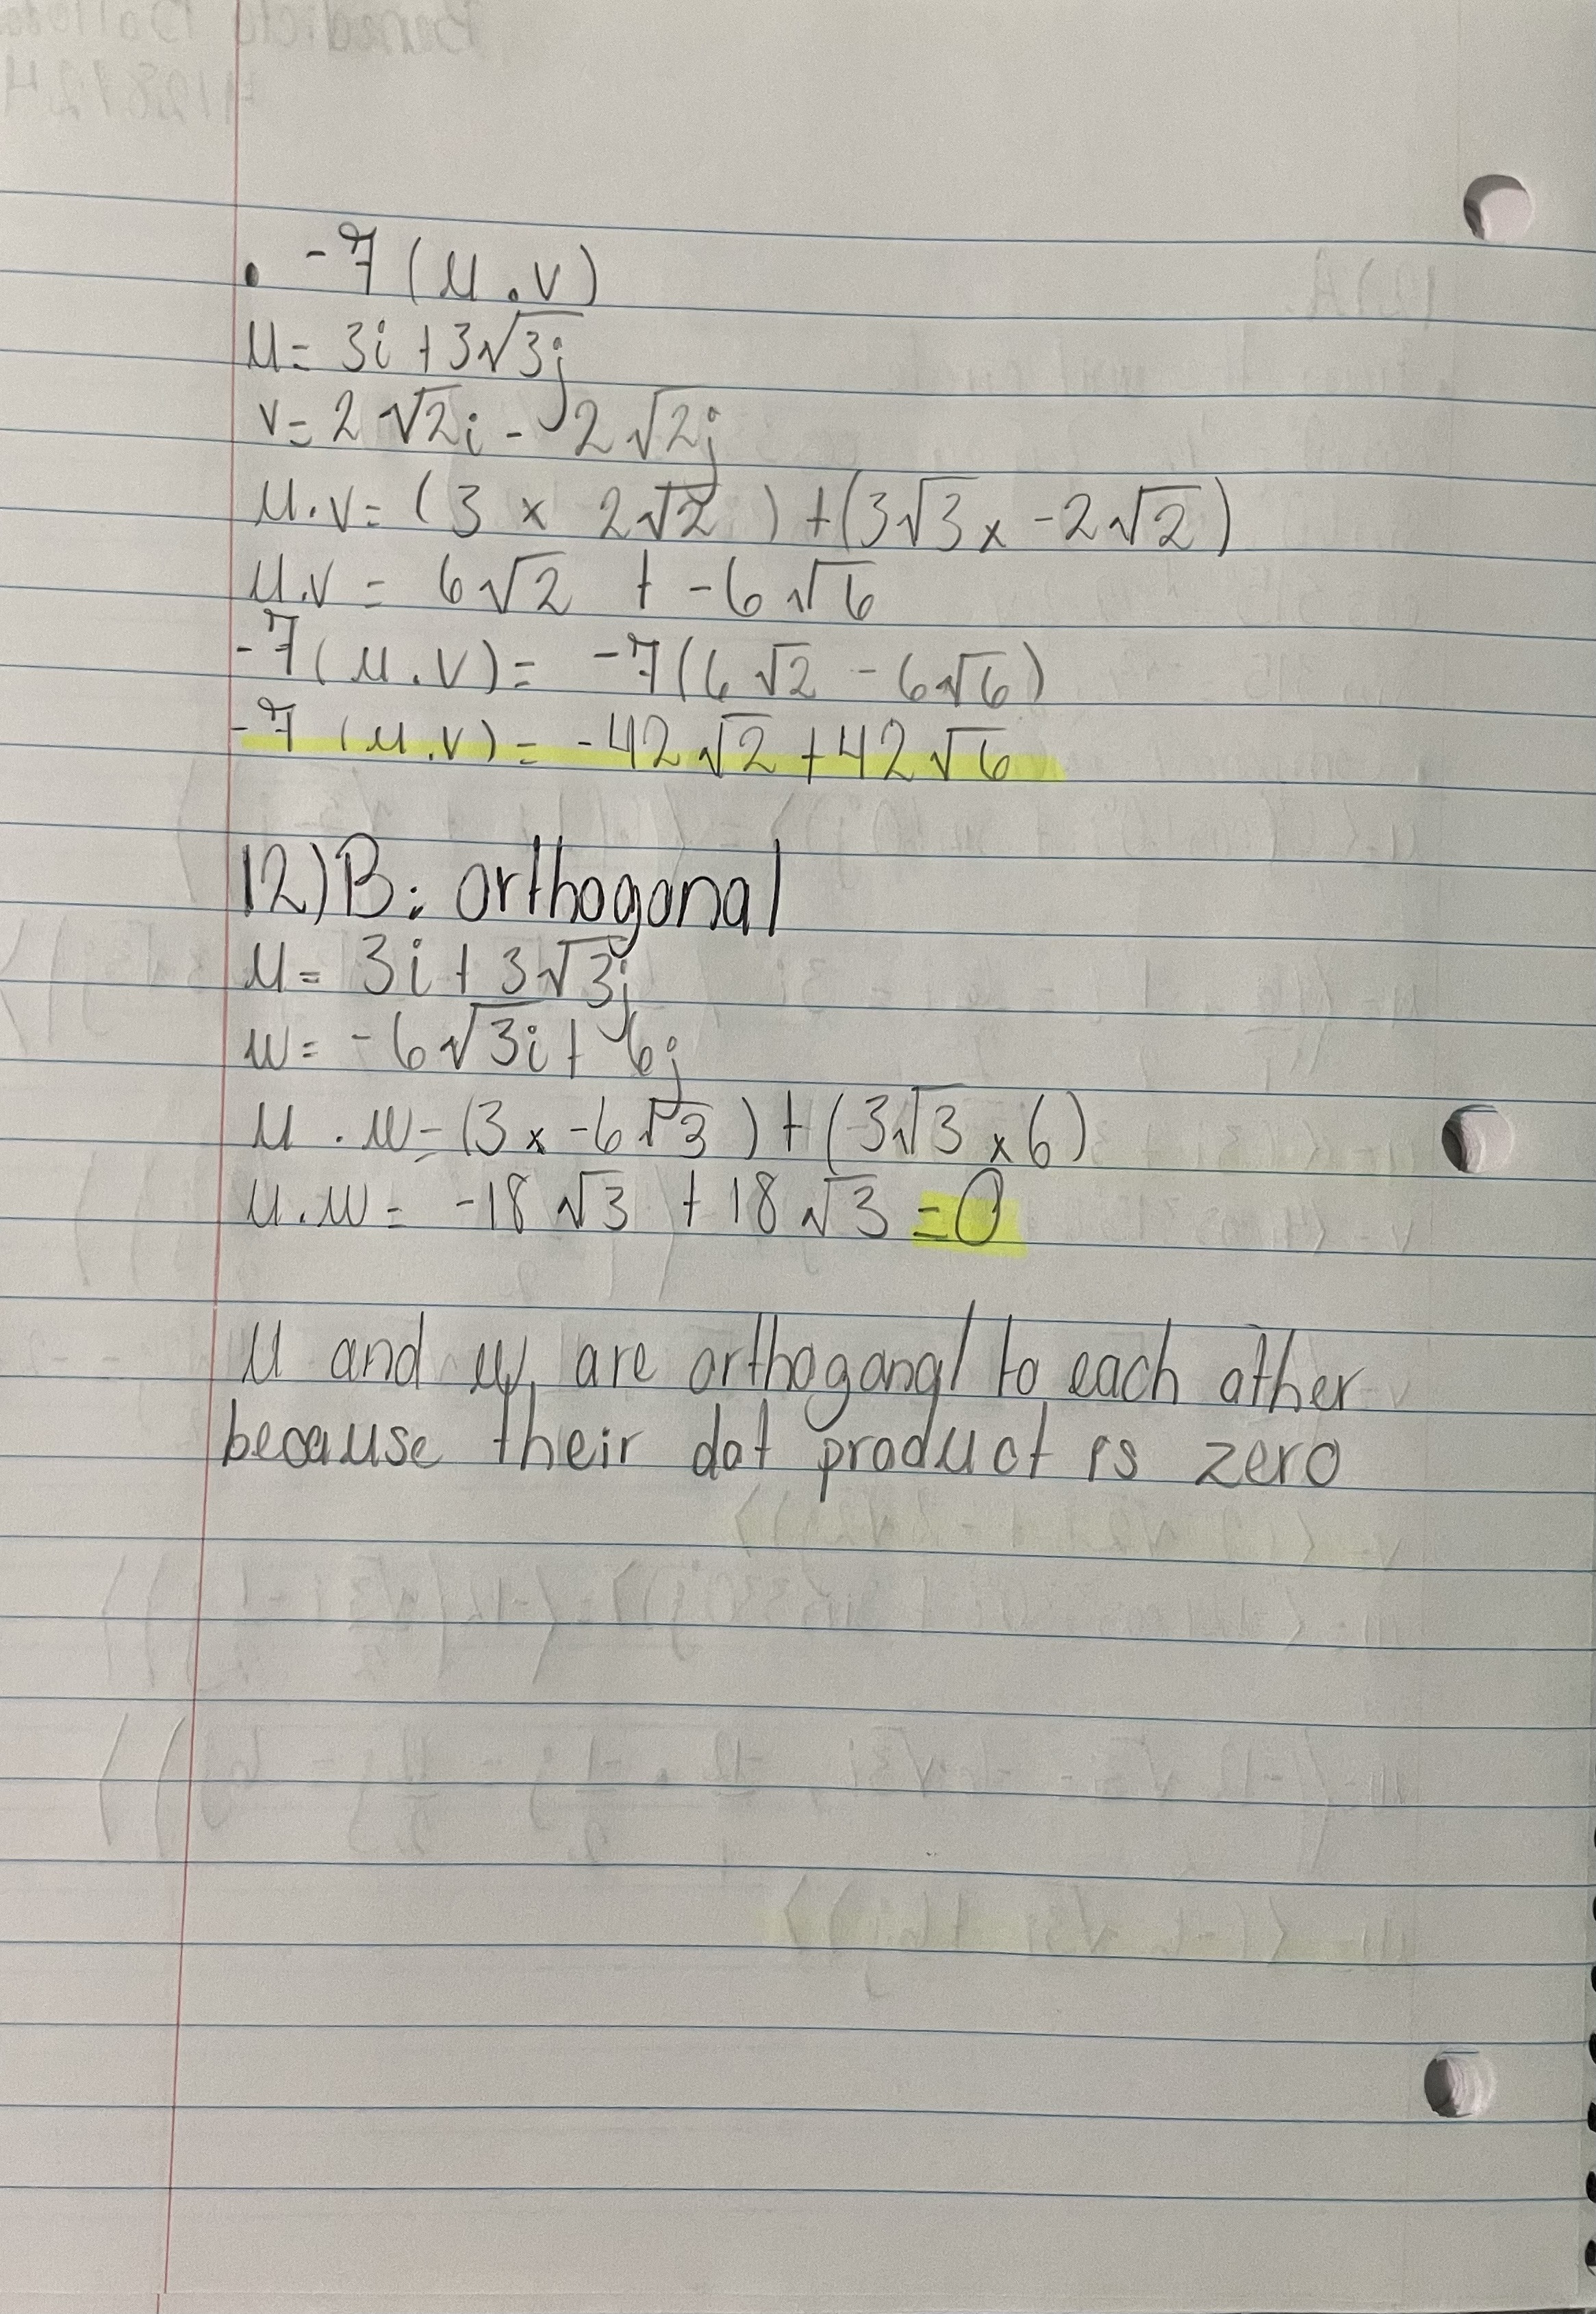 • -7 (u . v)
u = 3i + 3√3j
v = 2√2i - 2√2j
u . v = (3 x 2√2 ) + (3√3 x -2√2)
u . v = 6√2 + -6√6
-7(u . v) = -7(6√2 - 6√6)
-7 (u . v) = -42√2 + 42√6
12)B: orthogonal
u = 3i + 3√3j
w = -6√3i + 6j
u . w = (3 x -6√3 ) + (3√3 x 6)
u . w = -18√3 + 18√3 = 0
u and w, are orthogonal to each other
because their dot product is zero